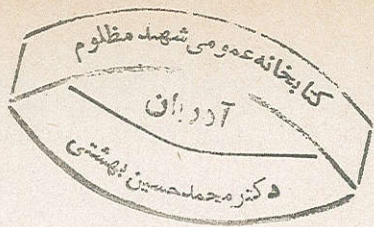 کتابخانه عمومی شهید مظلوم
آدربان
دکتر محمد حسین بهشتی